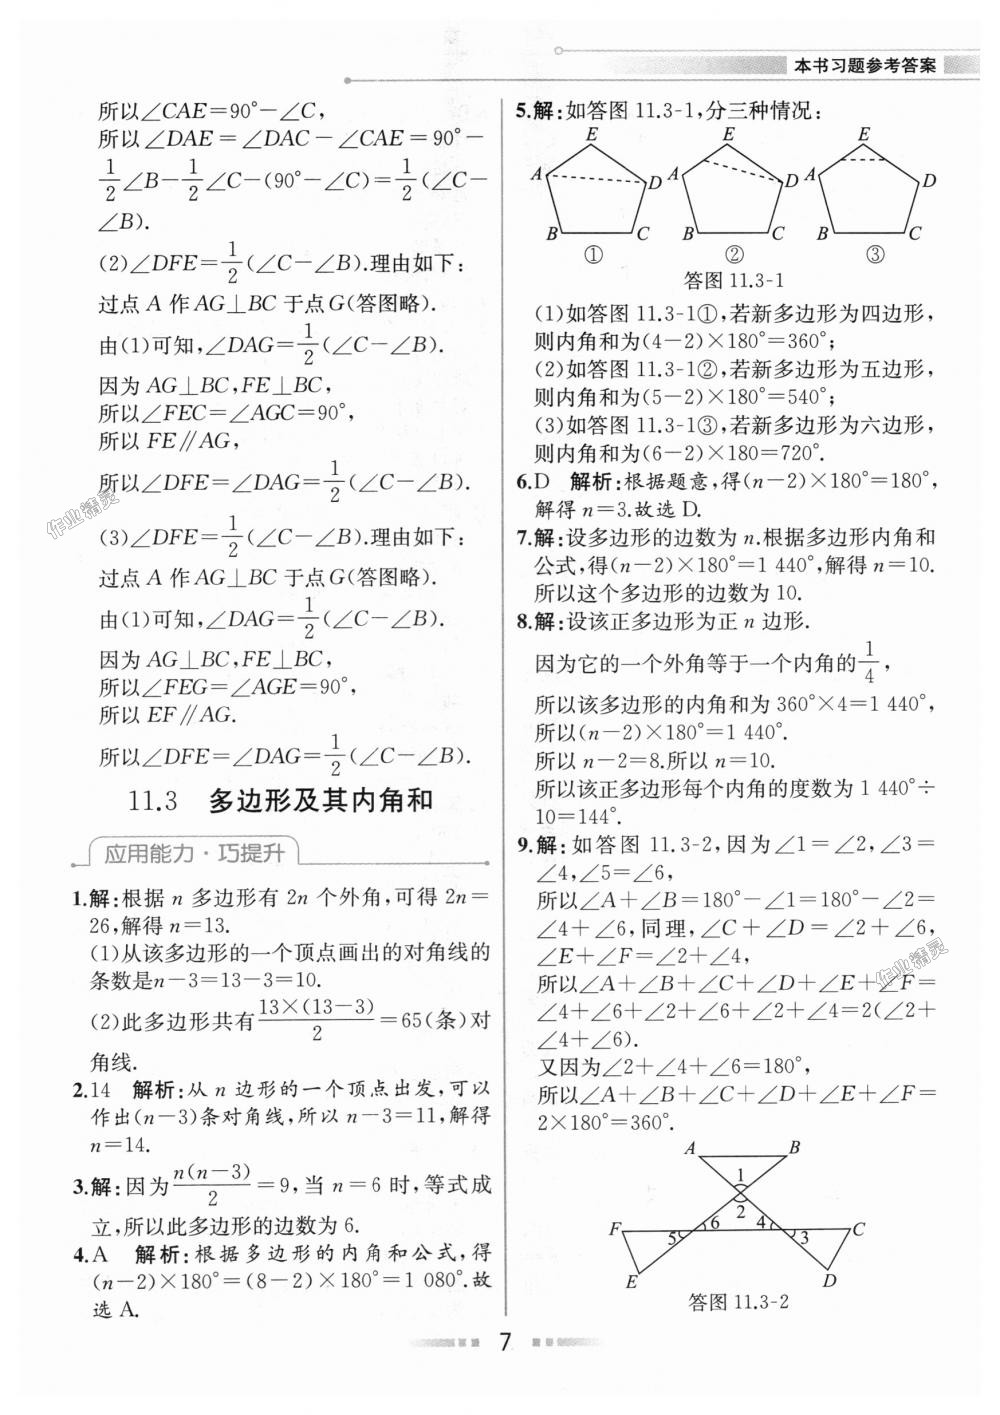 本书习题参考答案
所以∠CAE=90°-∠C,
所以∠DAE=∠DAC-∠CAE=90°-
1/2∠B-1/2∠C-(90°-∠C)=1/2(∠C-
∠B).
(2)∠DFE=1/2(∠C-∠B).理由如下:
过点A作AG⊥BC于点G(答图略).
由(1)可知,∠DAG=1/2(∠C-∠B).
因为AG⊥BC,FE⊥BC,
所以∠FEC=∠AGC=90°,
所以FE∥AG,
所以∠DFE=∠DAG=1/2(∠C-∠B).
(3)∠DFE=1/2(∠C-∠B).理由如下:
过点A作AG⊥BC于点G(答图略).
由(1)可知,∠DAG=1/2(∠C-∠B).
因为AG⊥BC,FE⊥BC,
所以∠FEG=∠AGE=90°,
所以EF∥AG.
所以∠DFE=∠DAG=1/2(∠C-∠B).
11.3 多边形及其内角和
应用能力·巧提升
1.解:根据n多边形有2n个外角,可得2n=
26,解得n=13.
(1)从该多边形的一个顶点画出的对角线的
条数是n-3=13-3=10.
(2)此多边形共有13×(13-3)/2=65(条)对
角线.
2.14 解析:从n边形的一个顶点出发,可以
作出(n-3)条对角线,所以n-3=11,解得
n=14.
3.解:因为n(n-3)/2=9,当n=6时,等式成
立,所以此多边形的边数为6.
4.A 解析:根据多边形的内角和公式,得
(n-2)×180°=(8-2)×180°=1 080°.故
选A.
5.解:如答图11.3-1,分三种情况:
E E E
A D A D A D
B C B C B C
① ② ③
答图11.3-1
(1)如答图11.3-1①,若新多边形为四边形,
则内角和为(4-2)×180°=360°;
(2)如答图11.3-1②,若新多边形为五边形,
则内角和为(5-2)×180°=540°;
(3)如答图11.3-1③,若新多边形为六边形,
则内角和为(6-2)×180=720°.
6.D 解析:根据题意,得(n-2)×180°=180°,
解得n=3.故选D.
7.解:设多边形的边数为n.根据多边形内角和
公式,得(n-2)×180°=1 440°,解得n=10.
所以这个多边形的边数为10.
8.解:设该正多边形为正n边形.
因为它的一个外角等于一个内角的1/4,
所以该多边形的内角和为360°×4=1 440°,
所以(n-2)×180°=1 440°.
所以n-2=8.所以n=10.
所以该正多边形每个内角的度数为1 440°÷
10=144°.
9.解:如答图11.3-2,因为∠1=∠2,∠3=
∠4,∠5=∠6,
所以∠A+∠B=180°-∠1=180°-∠2=
∠4+∠6,同理,∠C+∠D=∠2+∠6,
∠E+∠F=∠2+∠4,
所以∠A+∠B+∠C+∠D+∠E+∠F=
∠4+∠6+∠2+∠6+∠2+∠4=2(∠2+
∠4+∠6).
又因为∠2+∠4+∠6=180°,
所以∠A+∠B+∠C+∠D+∠E+∠F=
2×180°=360°.
A B
1
2
F 5 6 4 3 C
E D
答图11.3-2
7
作业精灵
作业精灵